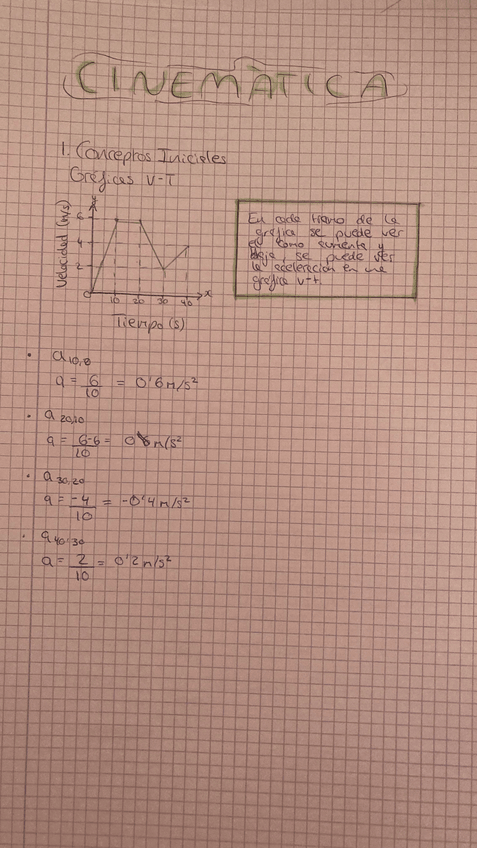 CINEMÀTICA
1. Conceptos Iniciales
Gráficas V-T
Velocidad (m/s)
y
6
4
2
0
10 20 30 40 x
Tiempo (s)
En cada tramo de la
gráfica se puede ver
como aumenta y
baja, se puede ver
la aceleración en una
gráfica v-t.
• a10,0
a = 6/10 = 0'6 m/s²
• a20,10
a = 6-6/10 = 0 m/s²
• a30,20
a = -4/10 = -0'4 m/s²
• a40,30
a = 2/10 = 0'2 m/s²